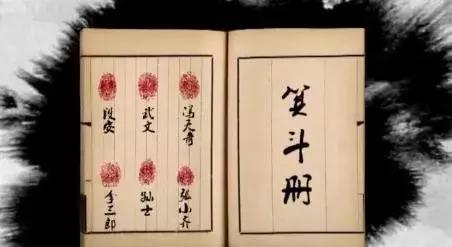 箕斗册
冯天奇
武文
段安
张山齐
孙士
李三郎